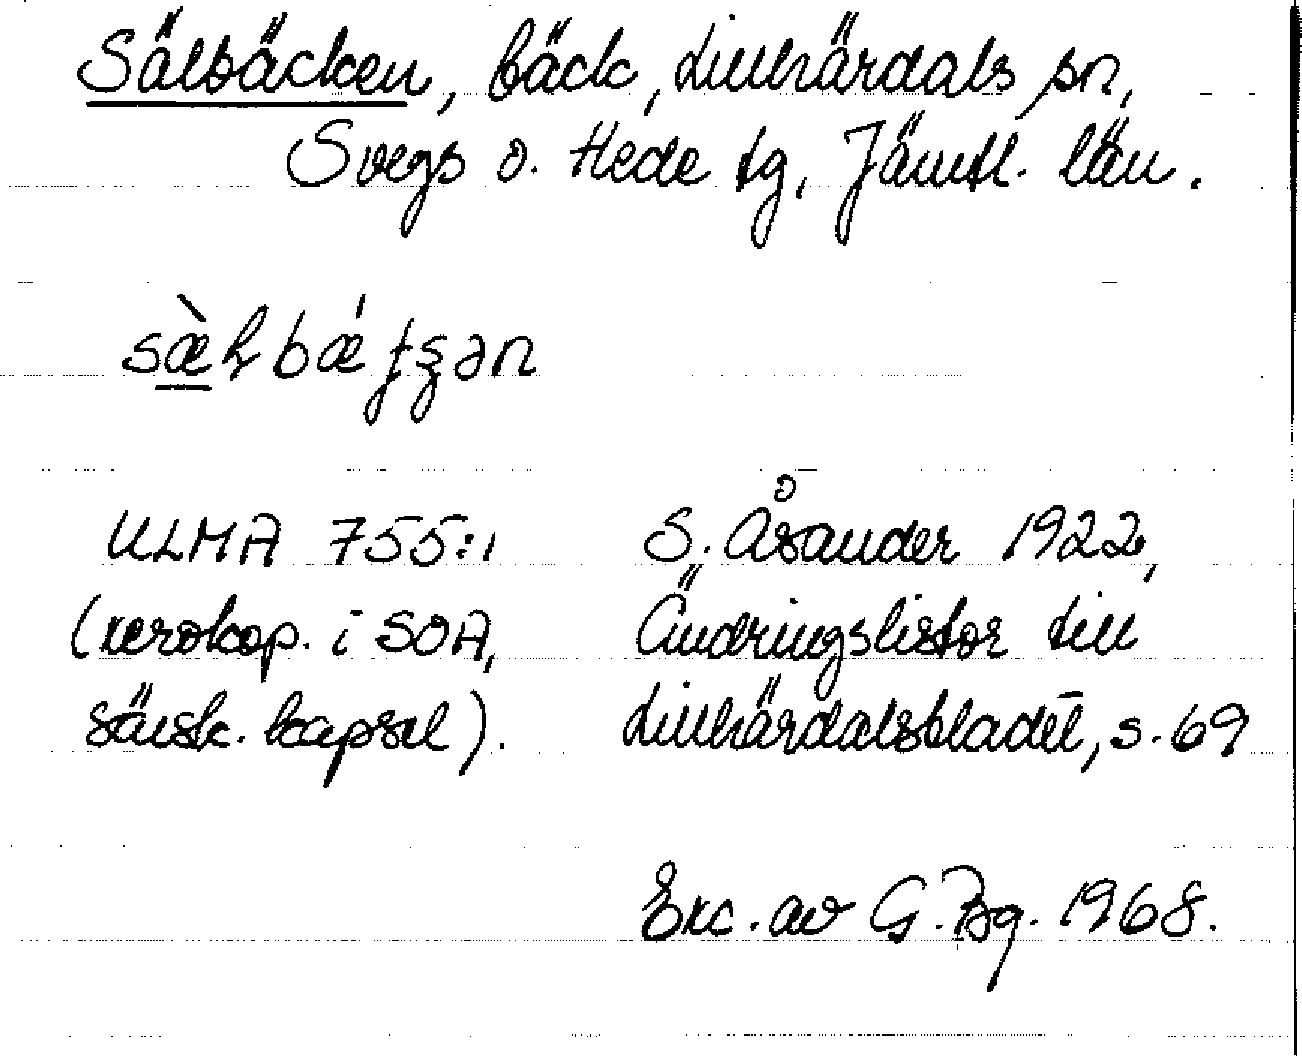 Sälbäcken, bäck, Lillhärdals sn,
Svegs o. Hede tg, Jämtl. län.
ULMA 755:1
(xerokop. i SOA,
särsk. kapsel).
S. Åsander 1922,
Ändringslistor till
Lillhärdalsbladet, s. 69
Exc. av G. Bg. 1968.